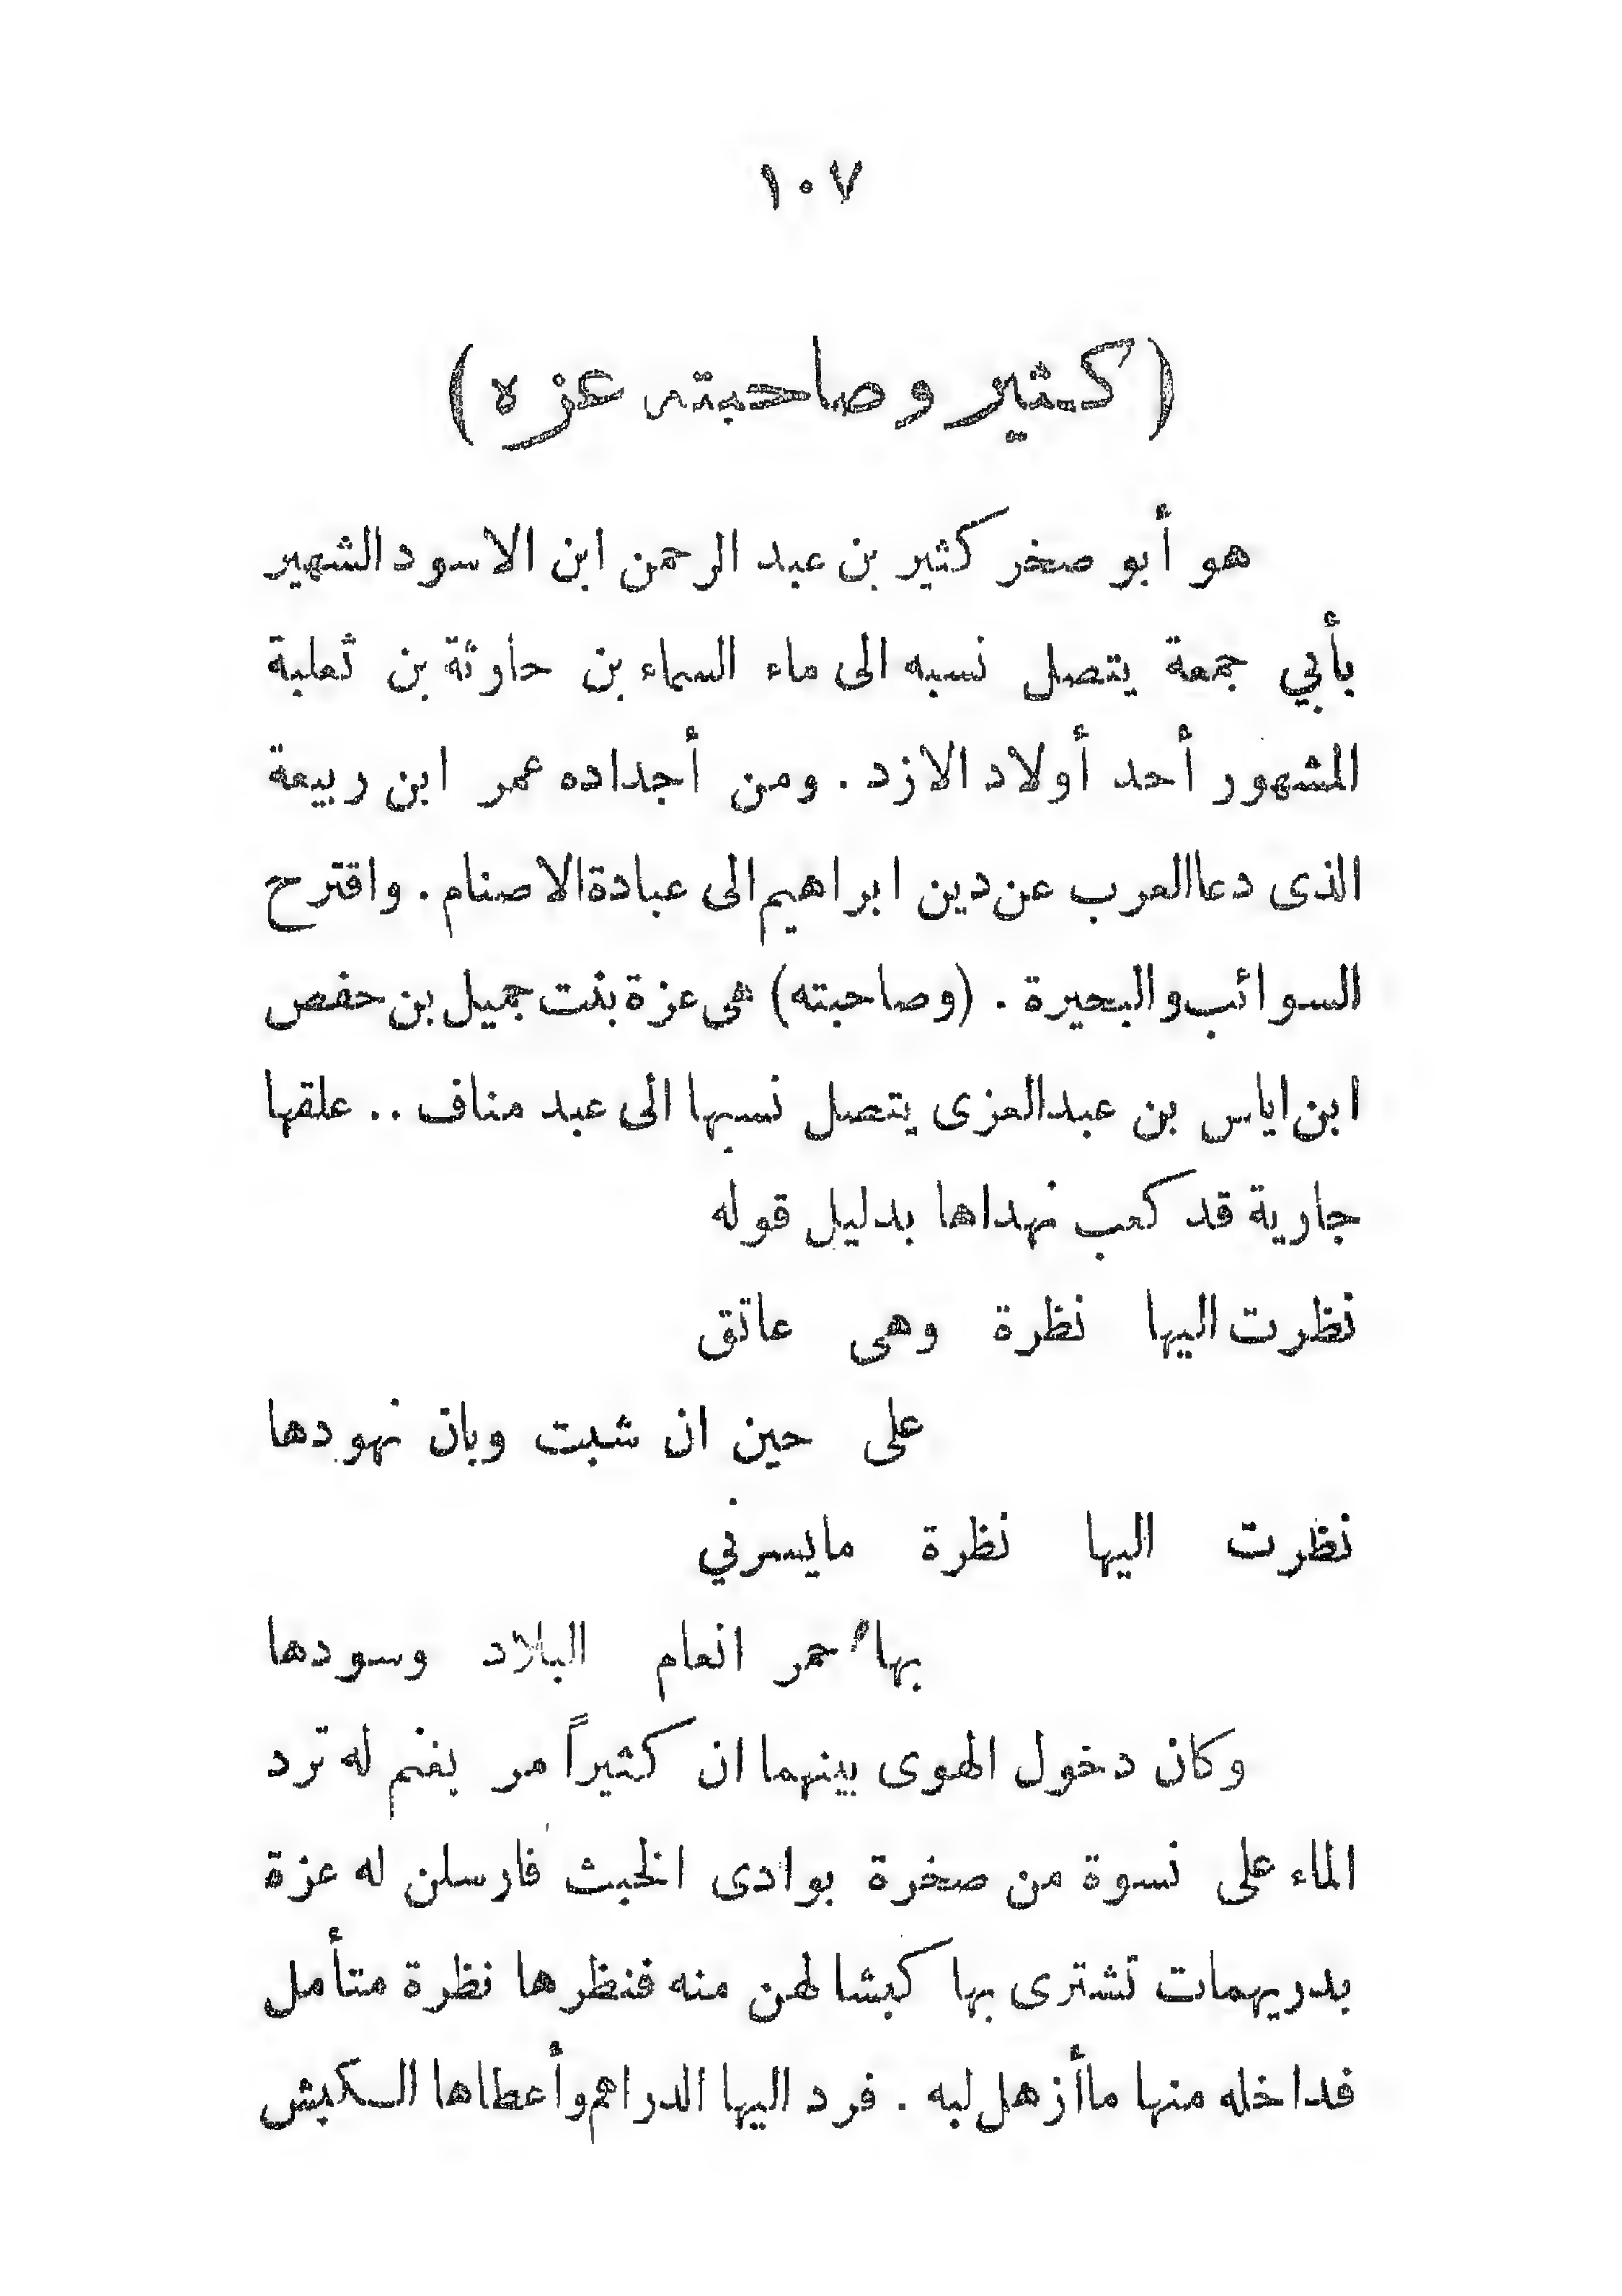 ١٠٧
( كثير وصاحبته عزه )
هو أبو صخر كثير بن عبد الرحمن ابن الاسود الشهير
بأبي جمعة يتصل نسبه الى ماء السماء بن حاوثة بن ثعلبة
المشهور أحد أولاد الازد . ومن أجداده عمر ابن ربيعة
الذى دعا العرب عن دين ابراهيم الى عبادة الاصنام . واقترح
السوائب والبحيرة . (وصاحبته) هى عزة بنت جميل بن حفص
ابن اياس بن عبد العزى يتصل نسبها الى عبد مناف .. علقها
جارية قد كعب نهداها بدليل قوله
نظرت اليها نظرة وهى عاتق
على حين ان شبت وبان نهودها
نظرت اليها نظرة مايسرني
بها حُمر انعام البلاد وسودها
وكان دخول الهوى بينهما ان كثيراً مر بغنم له ترد
الماء على نسوة من صخرة بوادى الخبث فارسلن له عزة
بدريهمات تشترى بها كبشا لهن منه فنظرها نظرة متأمل
فداخله منها ماأزهل لبه . فرد اليها الدراهم وأعطاها الكبش